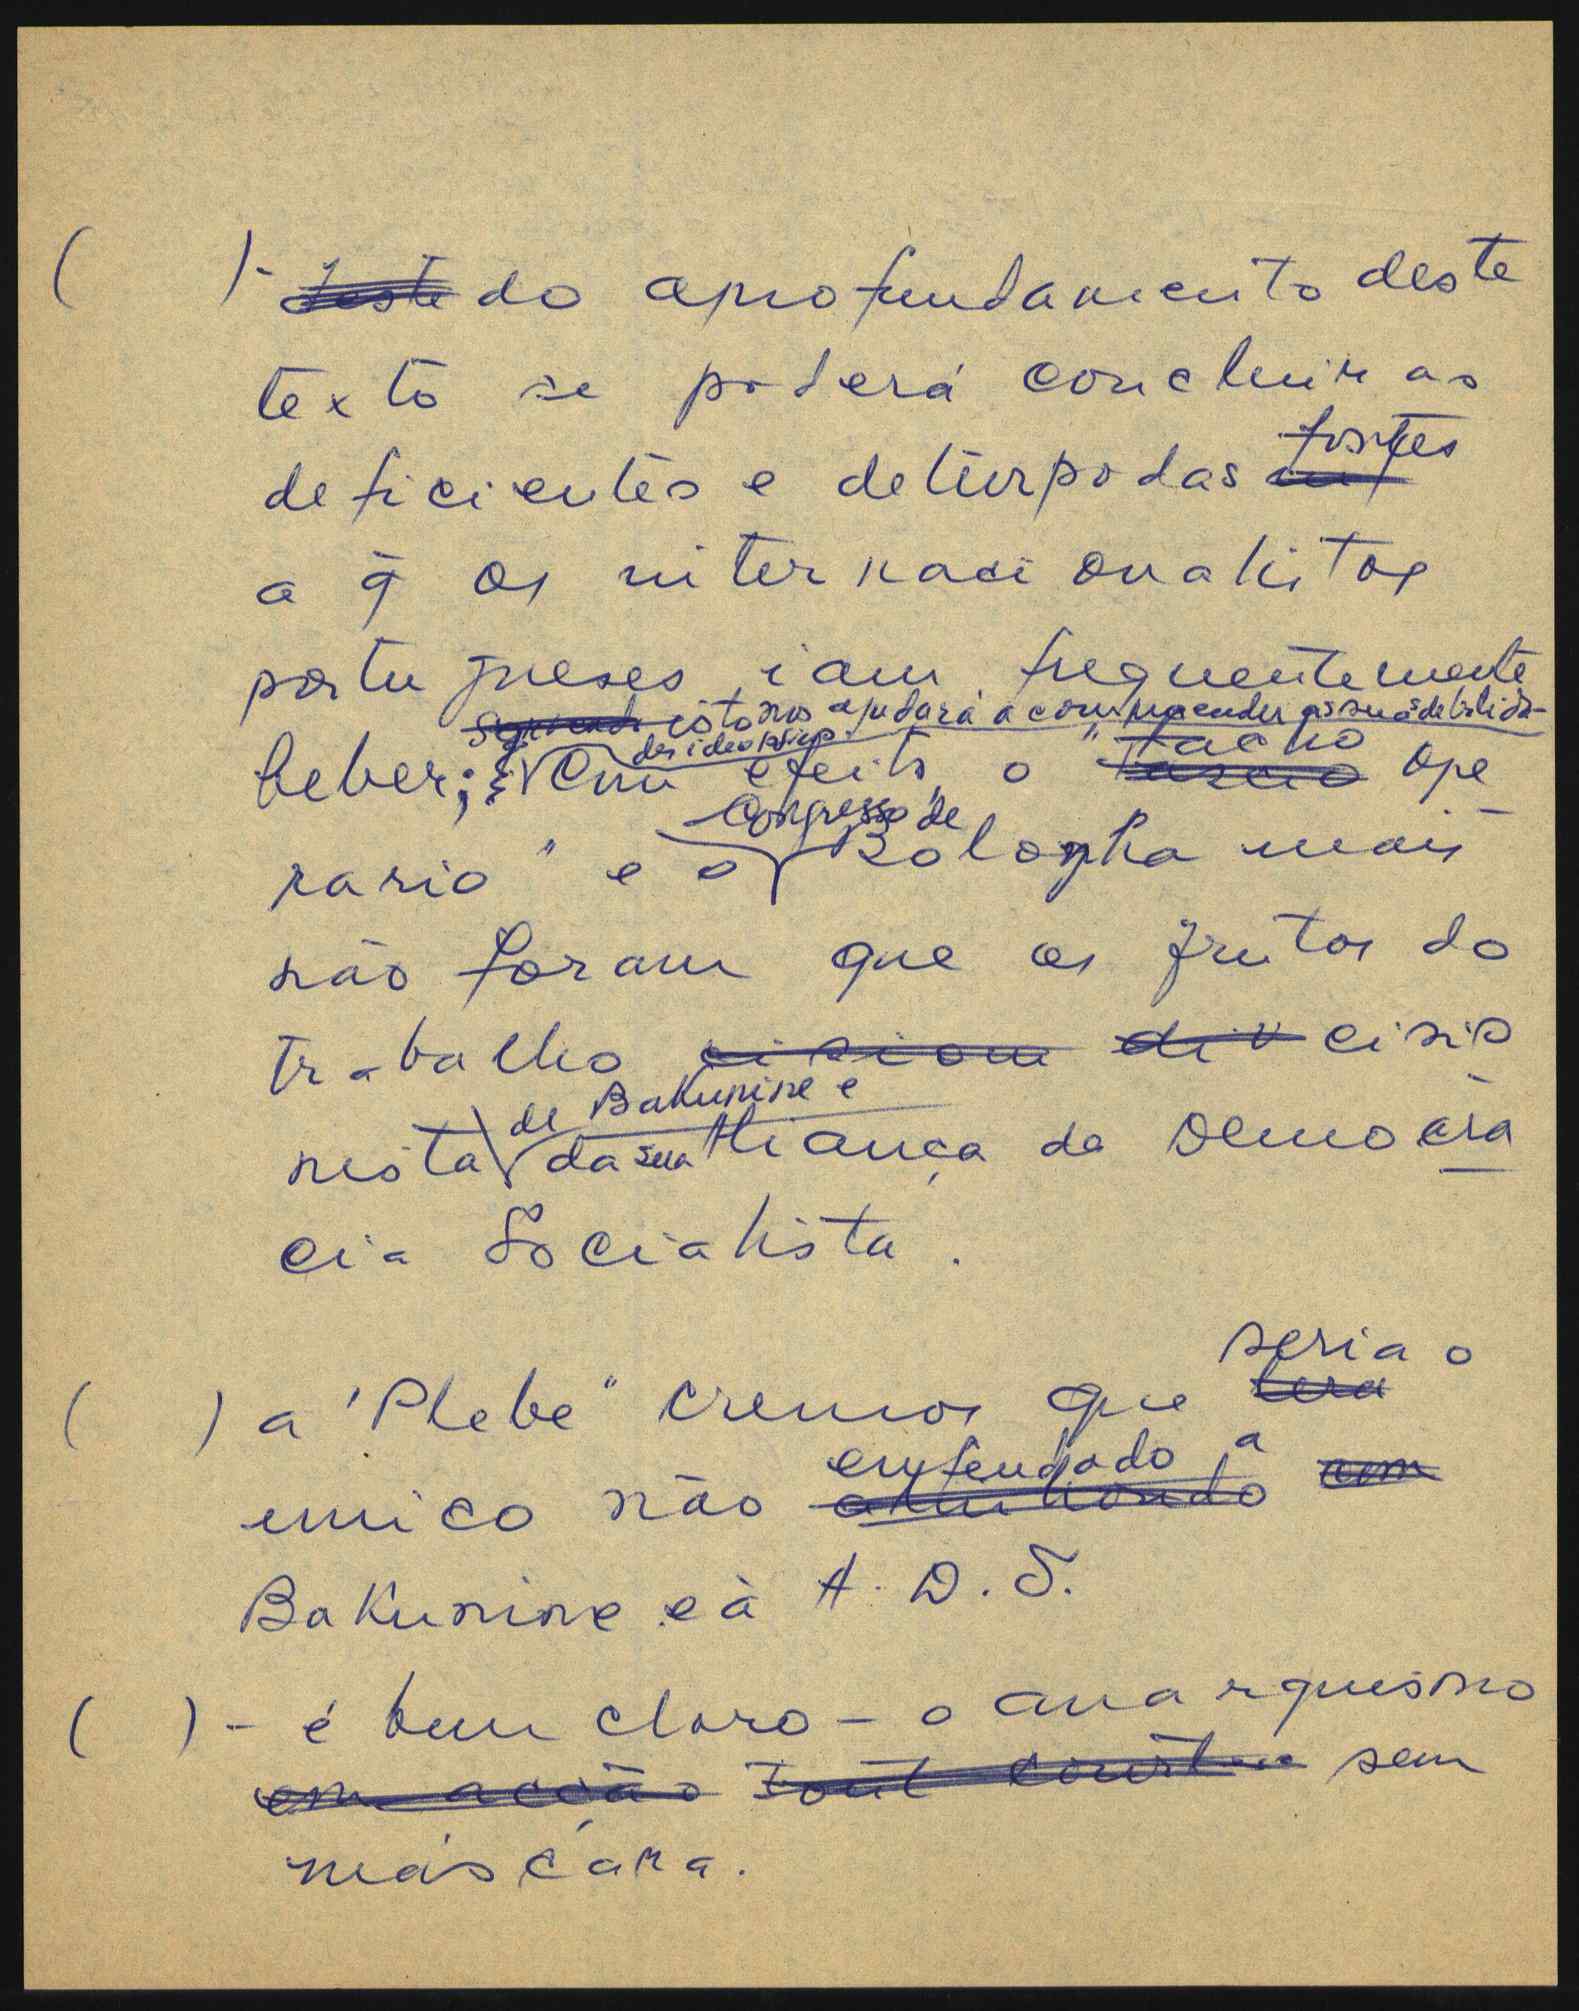 ( )- ~~deste~~ do aprofundamento deste
texto se poderá concluir as
deficientes e deturpadas fontes
a q̃ os internacionalistas
portugueses iam frequentemente
isto nos ajudará a compreender as suas debilida-
des ideológicas.
beber; Com efeito, o "Facho Ope
Congresso de
rario" e o Bolonha mais
não foram que os frutos do
trabalho ~~cisiom~~ ~~div~~ cisio
de Bakunine e
nista da sua Aliança da Democra
cia Socialista.
seria o
( ) a 'Plebe" cremos que ~~tera~~
enfeudado a
unico não ~~alinhando~~ ~~com~~
Bakunine e à A. D. S.
( )- é bem claro - o anarquismo
~~em acção~~ ~~tout court~~ sem
máscara.